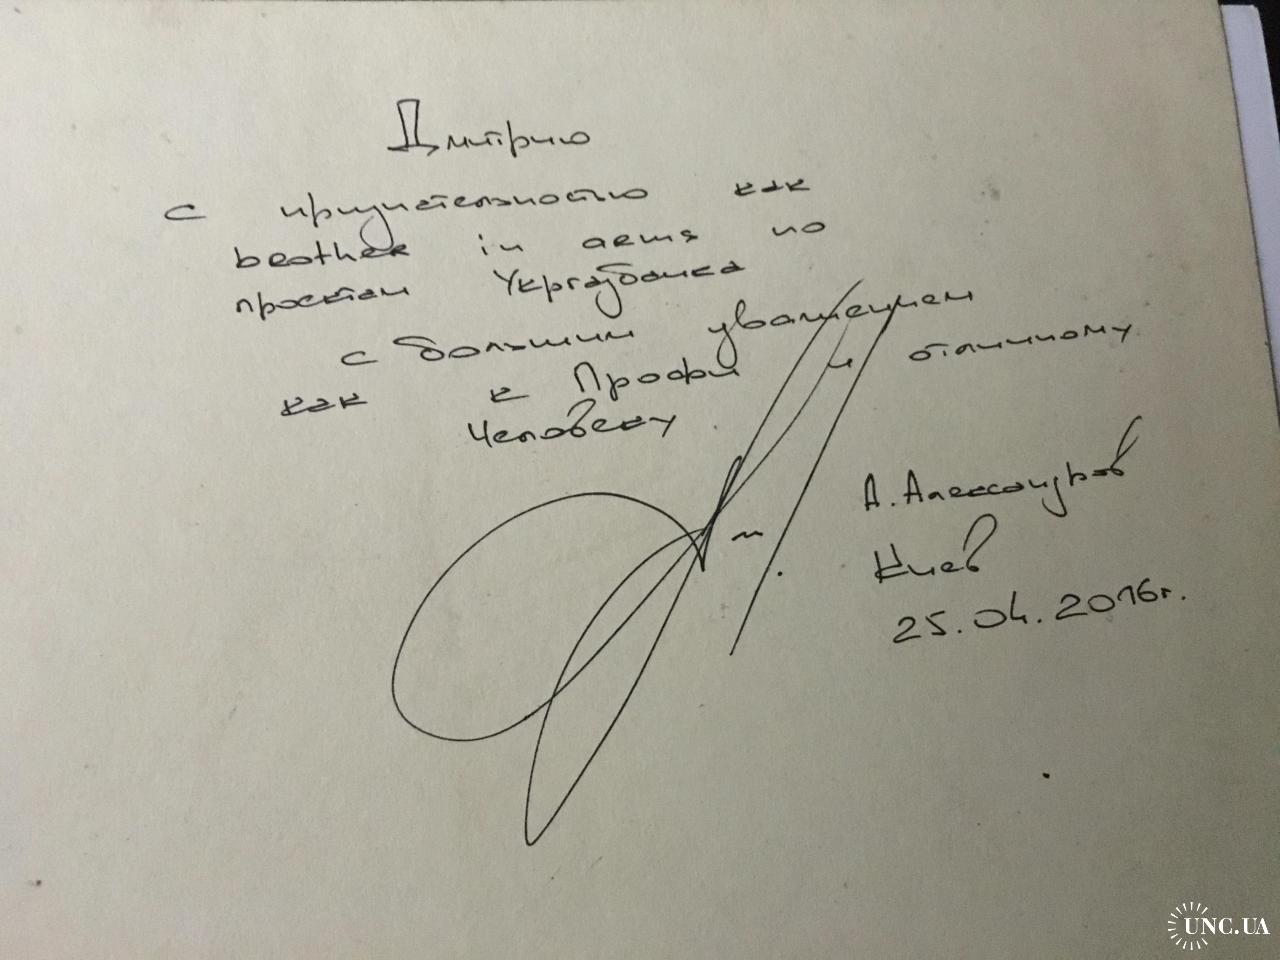 Дмитрию
с признательностью как
brother in arms по
проектам Укргазбанка
с большим уважением
как к Профи и отличному
Человеку
А. Александров
Киев
25.04.2016г.
UNC.UA